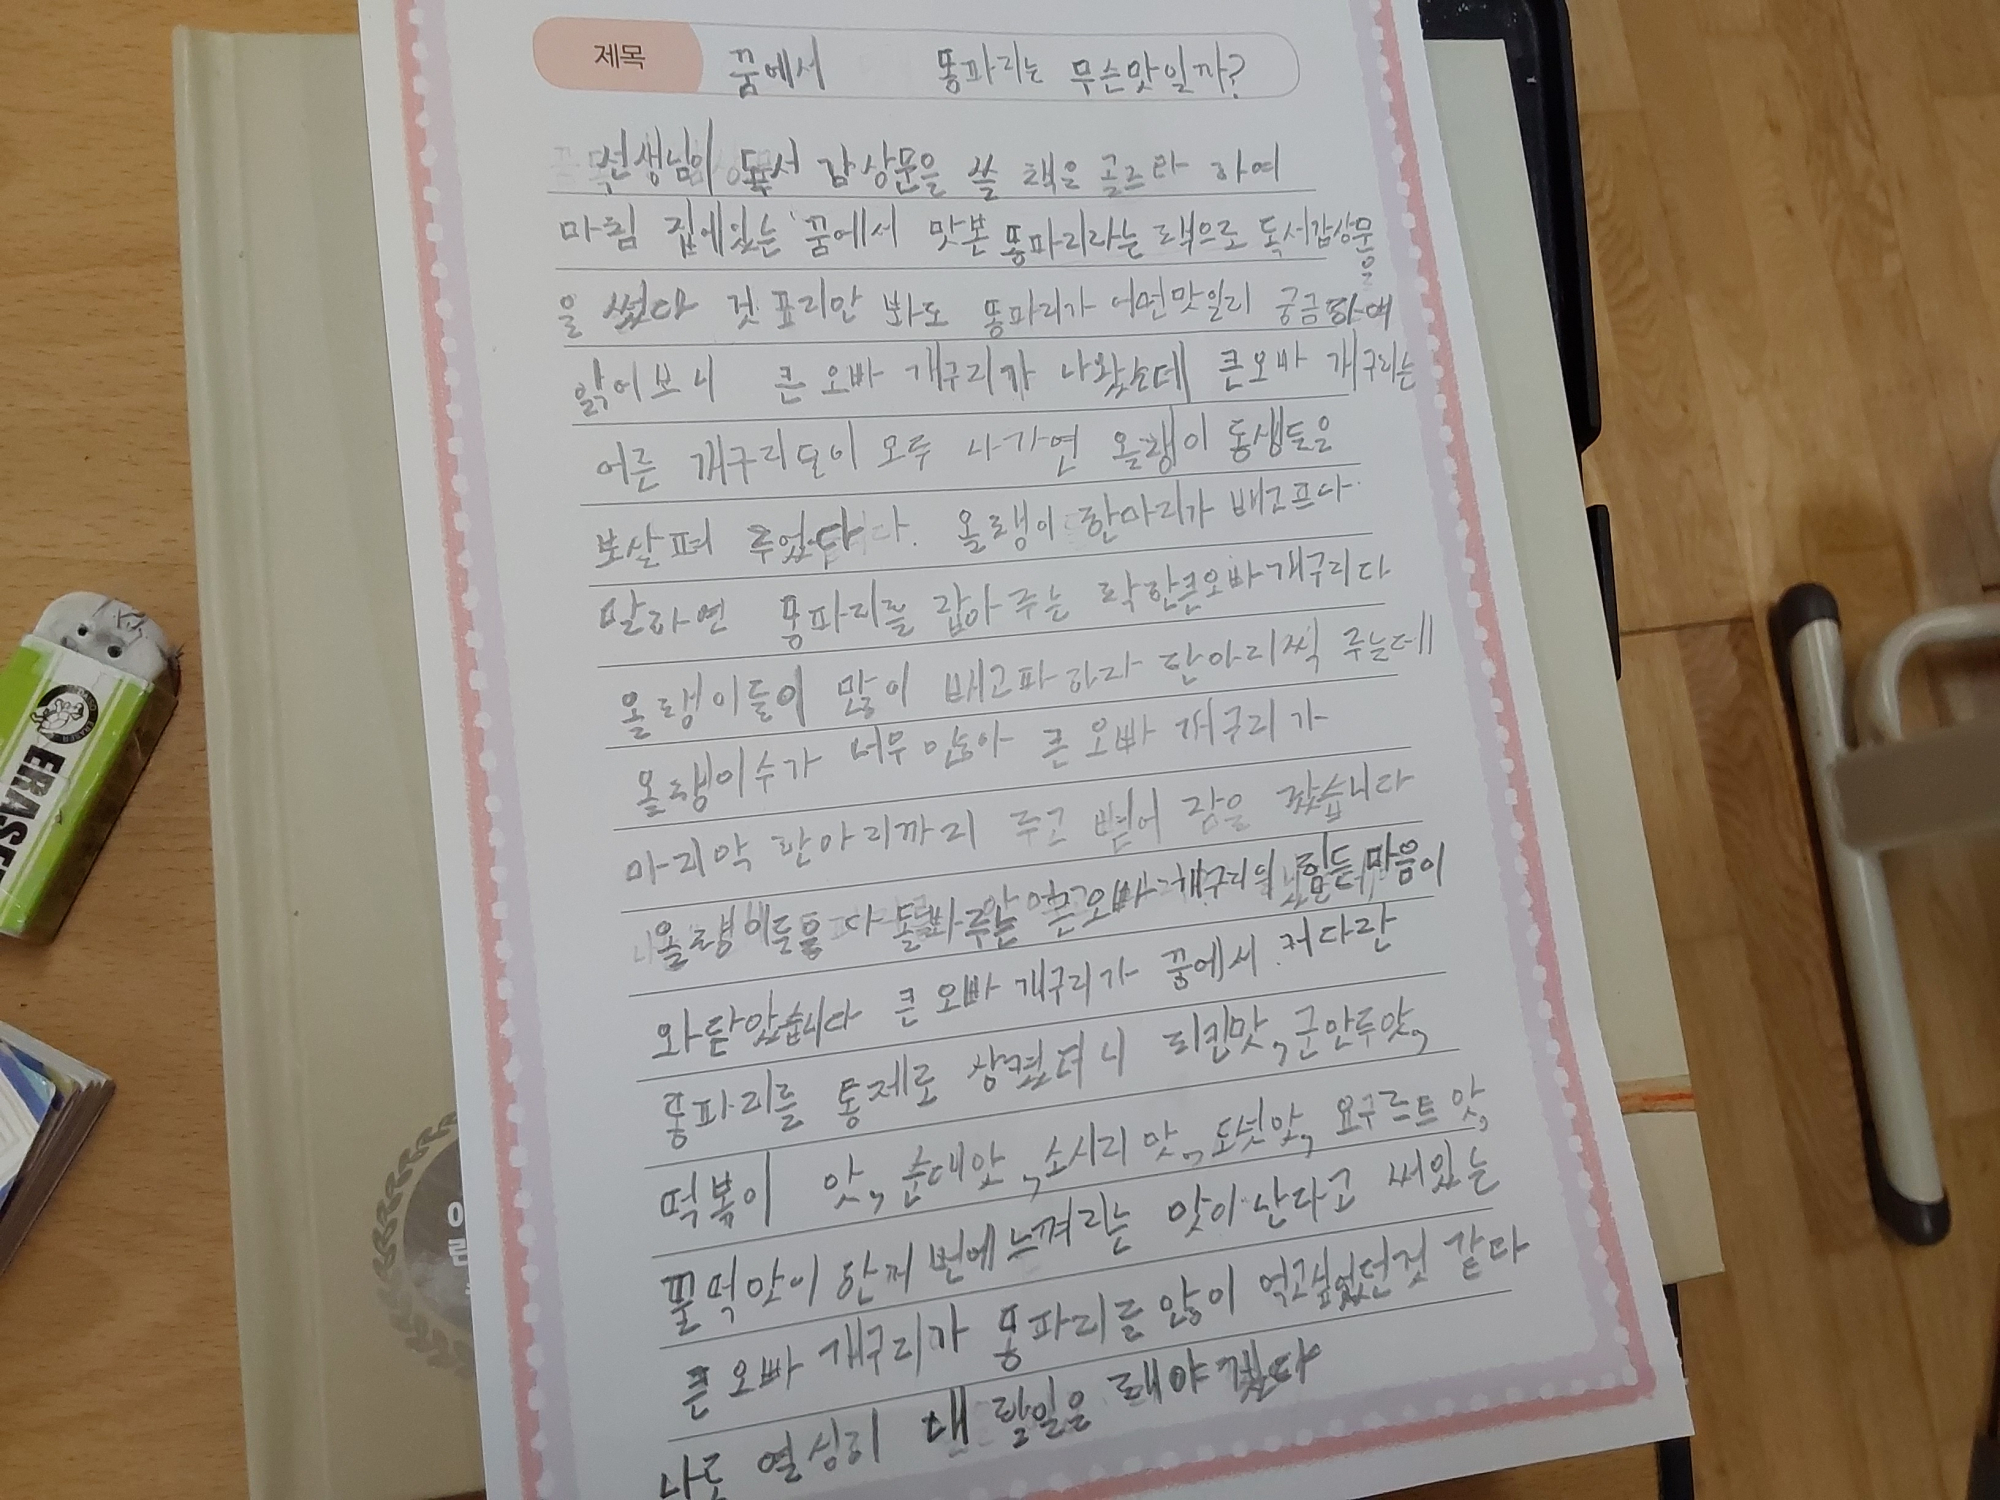 제목 꿈에서 똥파리는 무슨맛일까?
선생님이 독서 감상문을 쓸 책은 골르라 하여
마침 집에있는 꿈에서 맛본 똥파리라는 책으로 독서감상문
을 썼다 겉표리만 봐도 똥파리가 어떤맛일리 궁금하여
읽어보니 큰오빠 개구리가 나왔는데 큰오빠 개구리는
어른 개구리들이 모두 나가면 올챙이 동생들을
보살펴 주었다. 올챙이 한마리가 배고프다
말하면 똥파리를 잡아 주는 착한큰오빠개구리다
올챙이들이 많이 배고파 하라 한마리씩 주는데
올챙이수가 너무 많아 큰 오빠 개구리가
마지막 한마리까지 주고 뻗어 잠을 잤습니다
올챙이들을 다 돌봐주는 큰오빠 개구리의 힘든 마음이
와닫았습니다 큰 오빠 개구리가 꿈에서 커다란
똥파리를 통째로 삼켰더니 치킨맛, 군만두맛,
떡볶이 맛, 순대맛, 소시지 맛, 도넛맛, 요구르트 맛,
꿀떡맛이 한꺼번에 느껴지는 맛이 난다고 써있는
큰 오빠 개구리가 똥파리를 많이 먹고싶었던것 같다
나도 열심히 내 할일을 해야 겠다
ERASE
ERASER
어
린